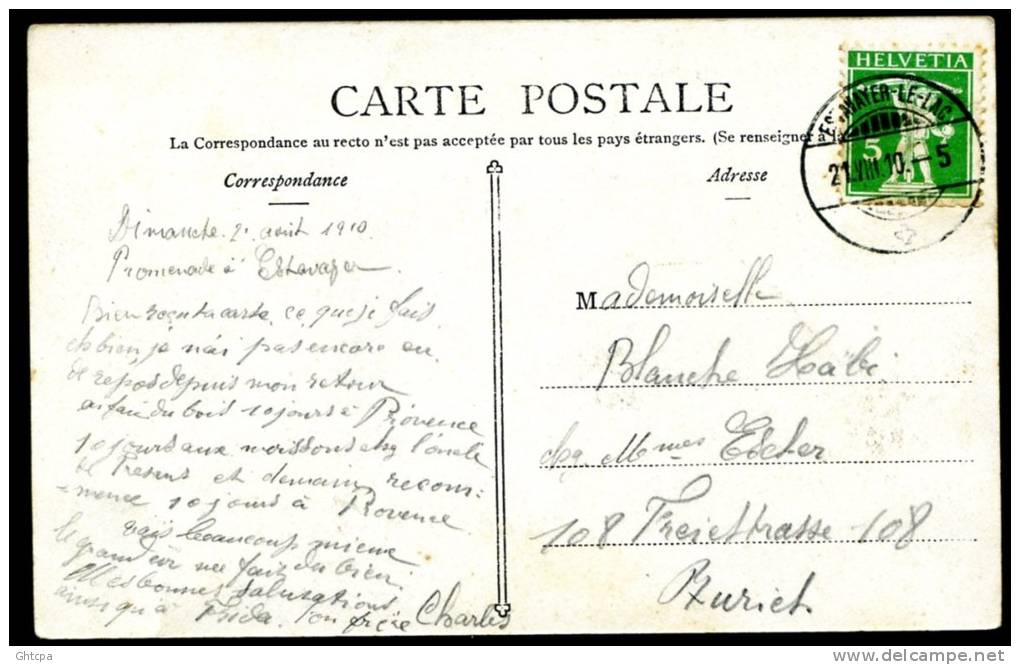 HELVETIA
5
ESTAVAYER-LE-LAC
21.VIII.10.-5
CARTE POSTALE
La Correspondance au recto n'est pas acceptée par tous les pays étrangers. (Se renseigner à la
Correspondance
Adresse
Dimanche 21 août 1910.
Promenade à Estavayer.
Bien reçu ta carte, ce que je fais
eh bien, je n'ai pas encore eu
de repos depuis mon retour
du bois 10 jours à Provence
10 jours aux moissons chz l'oncle
et demain recom=
=mence 10 jours à Provence
vais beaucoup mieux
le grand air me fait du bien.
Mes bonnes salutations
ainsi qu'à Frida. Ton frère Charles
Mademoiselle
Blanche
chz Mmes Escher
108 Freiestrasse 108
Zurich
Ghtcpa
delcampe.net